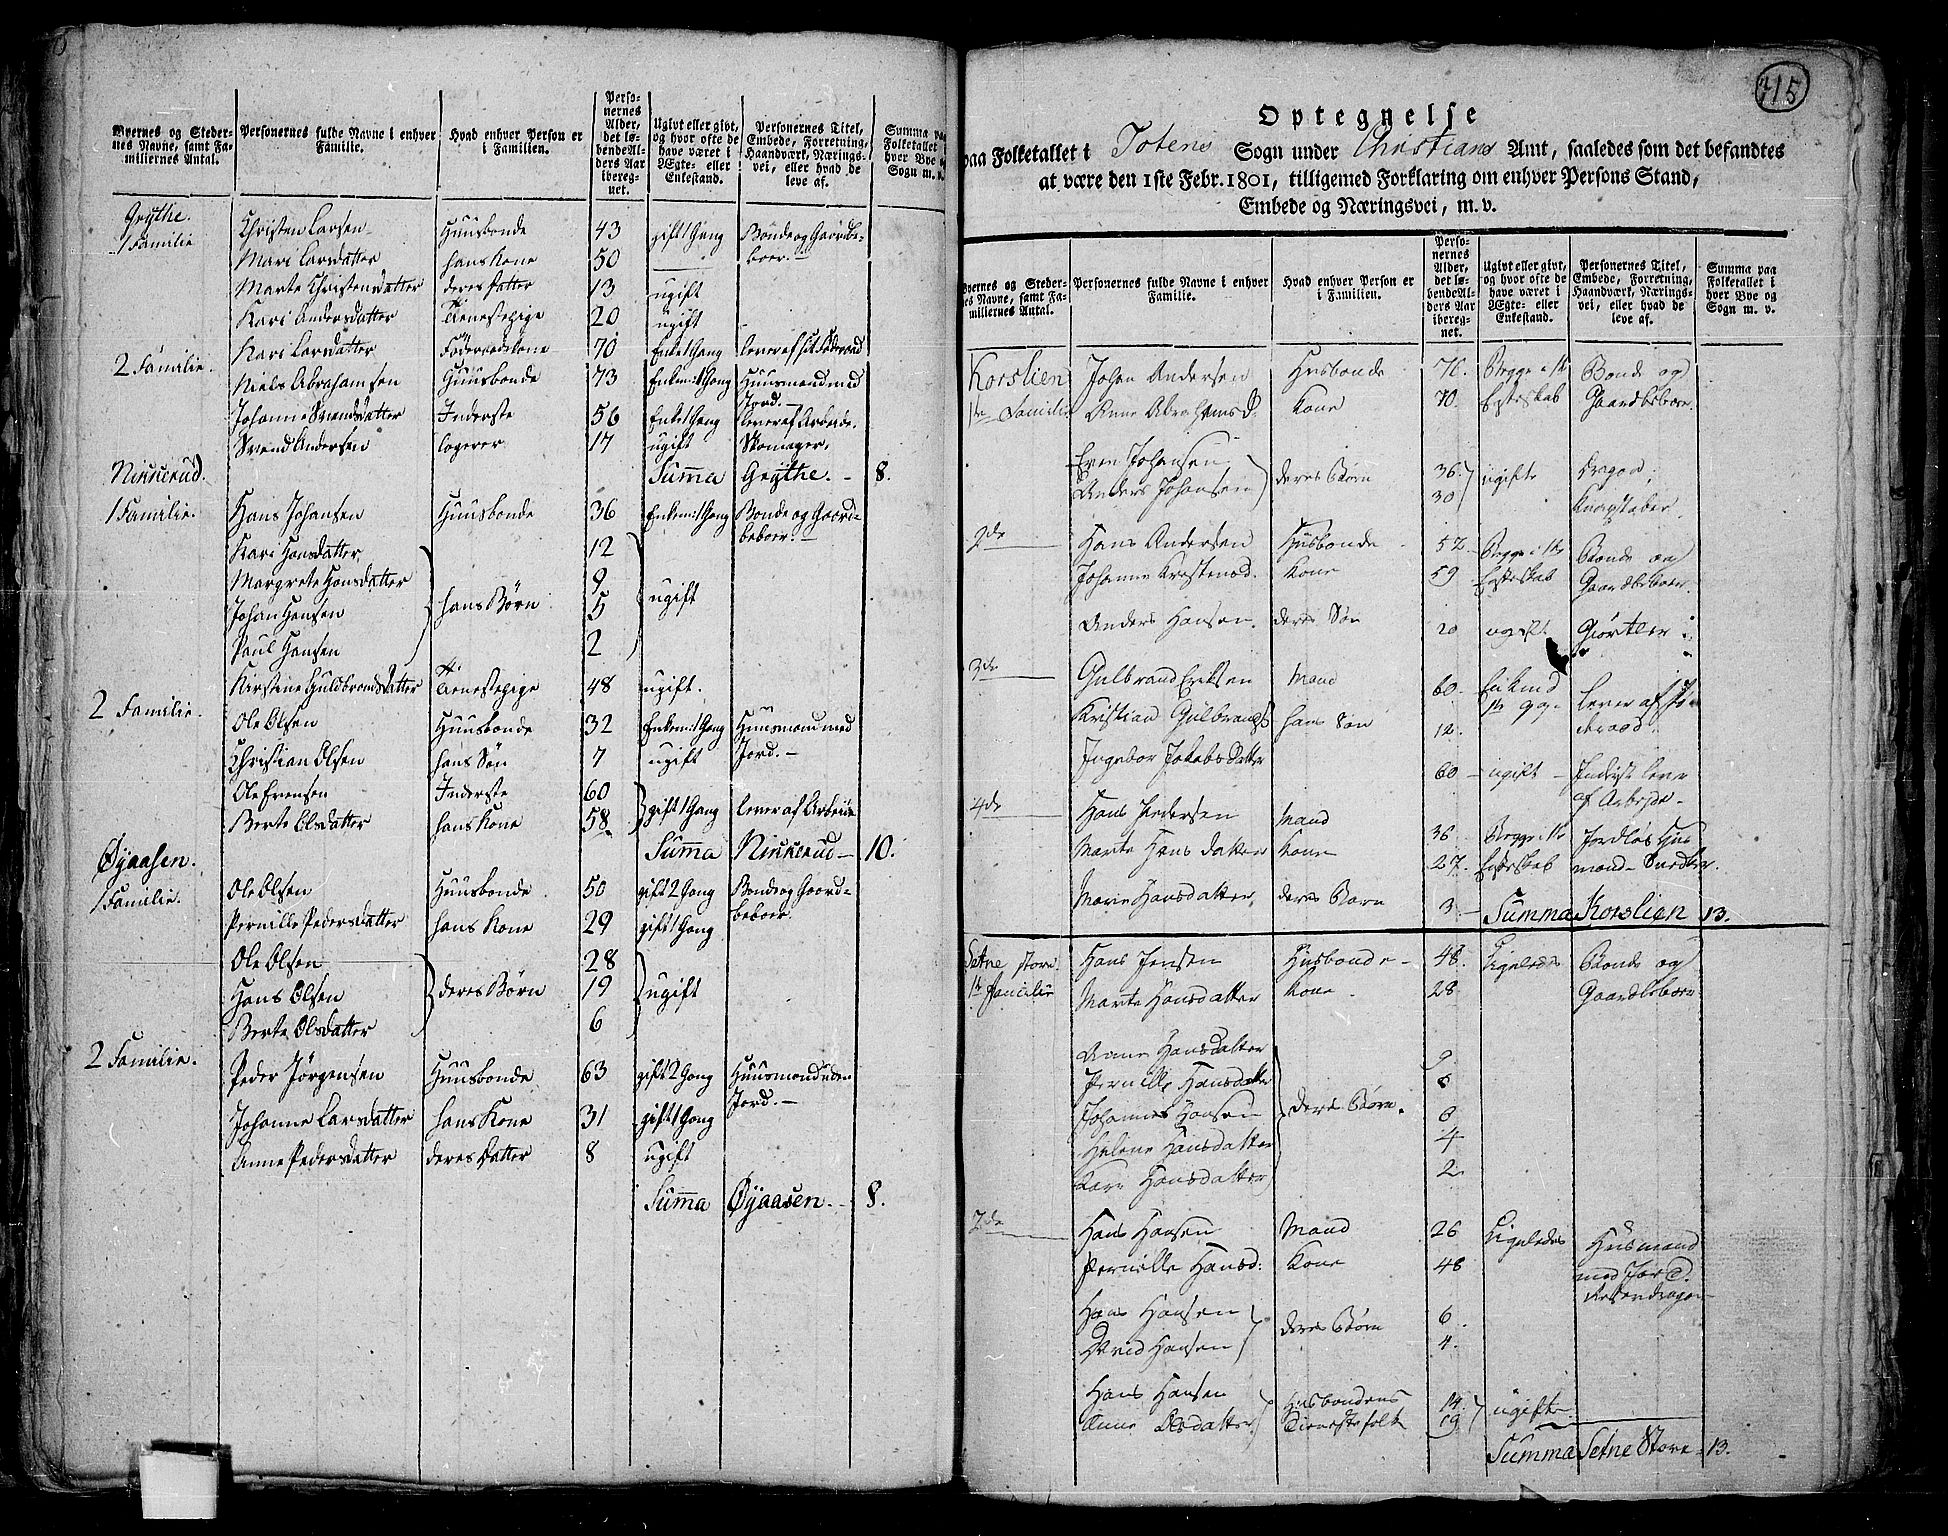 Byernes og Steder- nes Navne, samt Fa- miliernes Antal. | Personernes fulde Navne i enhver Familie. | Hvad enhver Person er i Familien. | Perso- nernes Alder, det lø- bende Al- ders Aar ibereg- net. | Ugivt eller givt, og hvor ofte de have været i Ægte- eller Enkestand. | Personernes Titel, Embede, Forretning, Haandværk, Nærings- vei, eller hvad de leve af. | Summa paa Folketallet i hver Bye og Sogn m. v.
Grythe.
1 Familie Christen Larsen Huusbonde 43 gift 1 Gang Bonde og Gaardbe-
Mari Larsdatter hans Kone 50 boer.
Marte Christensdatter deres datter 13 ugift
Kari Andersdatter Tienestepige 20 ugift
Kari Larsdatter Föderaadskone 70 Enke 1 Gang lever af sit Föderaad
2 Familie. Niels Abrahamsen Huusbonde 73 Enkem: 1 Gang Huusmand med Jord.
Johanne Svendsdatter Inderste 56 Enke 1 Gang lever af Arbeide.
Svend Andersen logerer 17 ugift Skomager.
Summa Grythe. 8.
Nikkerud.
1 Familie. Hans Johansen Huusbonde 36 Enkem: 1 Gang Bonde og Gaard-
beboer.
Kari Hansdatter 12
Margrete Hansdatter 9
Johan Hansen hans Börn 5 ugift
Paul Hansen 2
Kirstine Guldbrandsdatter Tienestepige 48 ugift.
2 Familie. Ole Olsen Huusbonde 32 Enkem: 1 Gang Huusmand med
Christian Olsen hans Sön 7 ugift Jord.
Ole Evensen Inderste 60
Berte Olsdatter hans Kone 58 gift 1 Gang lever af Arbeide
Summa Nikkerud 10.
Øyaasen.
1 Familie. Ole Olsen Huusbonde 50 gift 2 Gang Bonde og Gaard-
Pernille Pedersdatter hans Kone 29 gift 1 Gang beboer.
Ole Olsen 28
Hans Olsen deres Börn 19 ugift
Berte Olsdatter 6
2 Familie. Peder Jörgensen Huusbonde 63 gift 2 Gang Huusmand uden
Jord.
Johanne Larsdatter hans Kone 31 gift 1 Gang
Anne Pedersdatter deres datter 8 ugift
Summa Øyaasen. 8.
415
Optegnelse
paa Folketallet i Totens Sogn under Christians Amt, saaledes som det befandtes
at være den 1ste Febr. 1801, tilligemed Forklaring om enhver Persons Stand,
Embede og Næringsvei, m. v.
Byernes og Steder- nes Navne, samt Fa- miliernes Antal. | Personernes fulde Navne i enhver Familie. | Hvad enhver Person er i Familien. | Perso- nernes Alder, det lø- bende Al- ders Aar ibereg- net. | Ugivt eller givt, og hvor ofte de have været i Ægte- eller Enkestand. | Personernes Titel, Embede, Forretning, Haandværk, Nærings- vei, eller hvad de leve af. | Summa paa Folketallet i hver Bye og Sogn m. v.
Korslien Johan Andersen Husbonde 76. Begge i 1te Bonde og
1te Familie Anne Abrahamsd. Kone 70. Egteskab Gaardbeboer.
Even Johansen
Anders Johansen deres Börn 36. 30 ugifte Dragon.
2de Hans Andersen Husbonde 52 Begge i 1te Bonde og
Johanne Kristensd. Kone 59 Egteskab Gaardbeboer.
Anders Hansen. deres Sön 20 ugift Giörtler
3de Gulbrand Eriksen Mand 60. Enkmd lever af Fö-
Kristian Gulbrands hans Sön 12. 1te gg. deraad.
Ingebor Jakobsdatter 60 ugift Inderst lever
af Arbejde
4de Hans Pedersen Mand 36 Begge i 1te Jordlös Hus
Marte Hansdatter Kone 27. Egteskab mand Snedker.
Marie Hansdatter, deres Barn 3 Summa Korslien 13.
Sætne store.
1te Familie Hans Jensen Husbonde 48. Ligeledes Bonde og
Marte Hansdatter Kone 28 Gaardbeboer
Anne Hansdatter 9
Pernille Hansdatter 8
Johannes Hansen deres Börn. 6
Helene Hansdatter 4
Kari Hansdatter 2
2de Hans Hansen Mand 26 Ligeledes Husmand
Pernille Hansd: Kone 48 med Jord.
Hans Hansen 6
David Hansen deres Börn 4.
Hans Hansen Husbondens 14.
Anne Olsdatter Tienestefolk 19 ugifte
Summa Sætne Store 13.